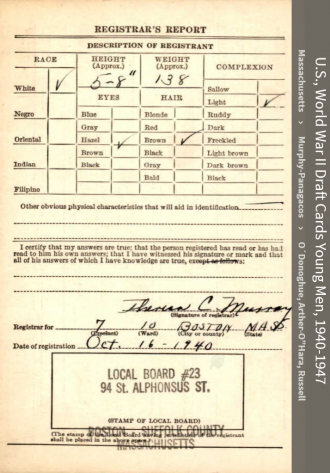 REGISTRAR'S REPORT
DESCRIPTION OF REGISTRANT
RACE HEIGHT (Approx.) WEIGHT (Approx.) COMPLEXION
5-8" 138
White ✓ Sallow
EYES HAIR Light ✓
Negro Blue Blonde Ruddy
Gray Red Dark
Oriental Hazel ✓ Brown ✓ Freckled
Brown Black Light brown
Indian Black Gray Dark brown
Bald Black
Filipino
Other obvious physical characteristics that will aid in identification
I certify that my answers are true; that the person registered has read or has had
read to him his own answers; that I have witnessed his signature or mark and that
all of his answers of which I have knowledge are true, except as follows:
C. Murray
(Signature of registrar)
Registrar for 7 10 BOSTON MASS
(Precinct) (Ward) (City or county) (State)
Date of registration Oct. 16-1940
LOCAL BOARD #23
94 St. ALPHONSUS ST.
(STAMP OF LOCAL BOARD)
BOSTON SUFFOLK COUNTY
(The stamp of the Local Board having jurisdiction of the registrant
shall be placed in the above space.)
MASSACHUSETTS
U.S., World War II Draft Cards Young Men, 1940-1947
Massachusetts > Murphy-Panagacos > O'Donoghue, Arther-O'"Hara, Russell